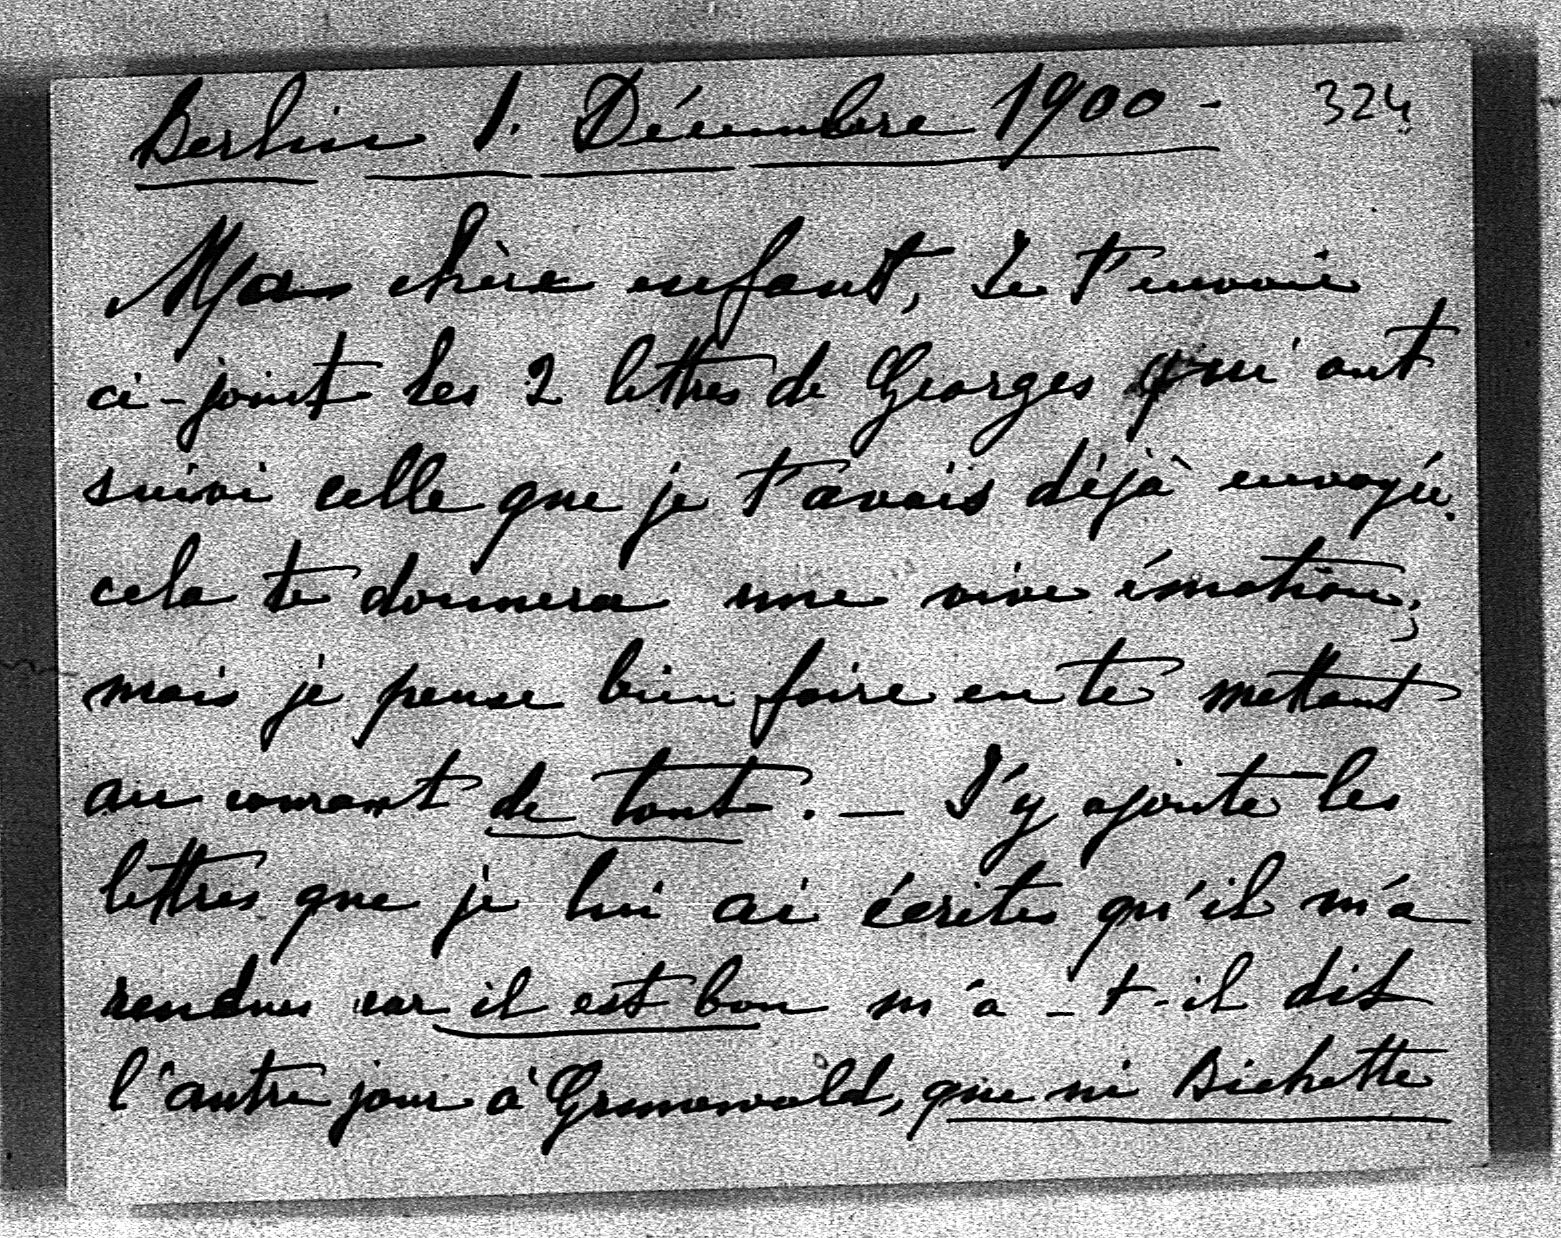 Berlin 1. Décembre 1900 - 324
Ma chère enfant, Je t'envoie
ci-joint les 2 lettres de Georges qui ont
suivi celle que je t'avais déjà envoyée.
cela te donnera une vive émotion,
mais je pense bien faire en te mettant
au courant de tout. — J'y ajoute les
lettres que je lui ai écrites qu'il m'a
rendues car il est bon m'a-t-il dit
l'autre jour à Grunewald, que ni Bichette